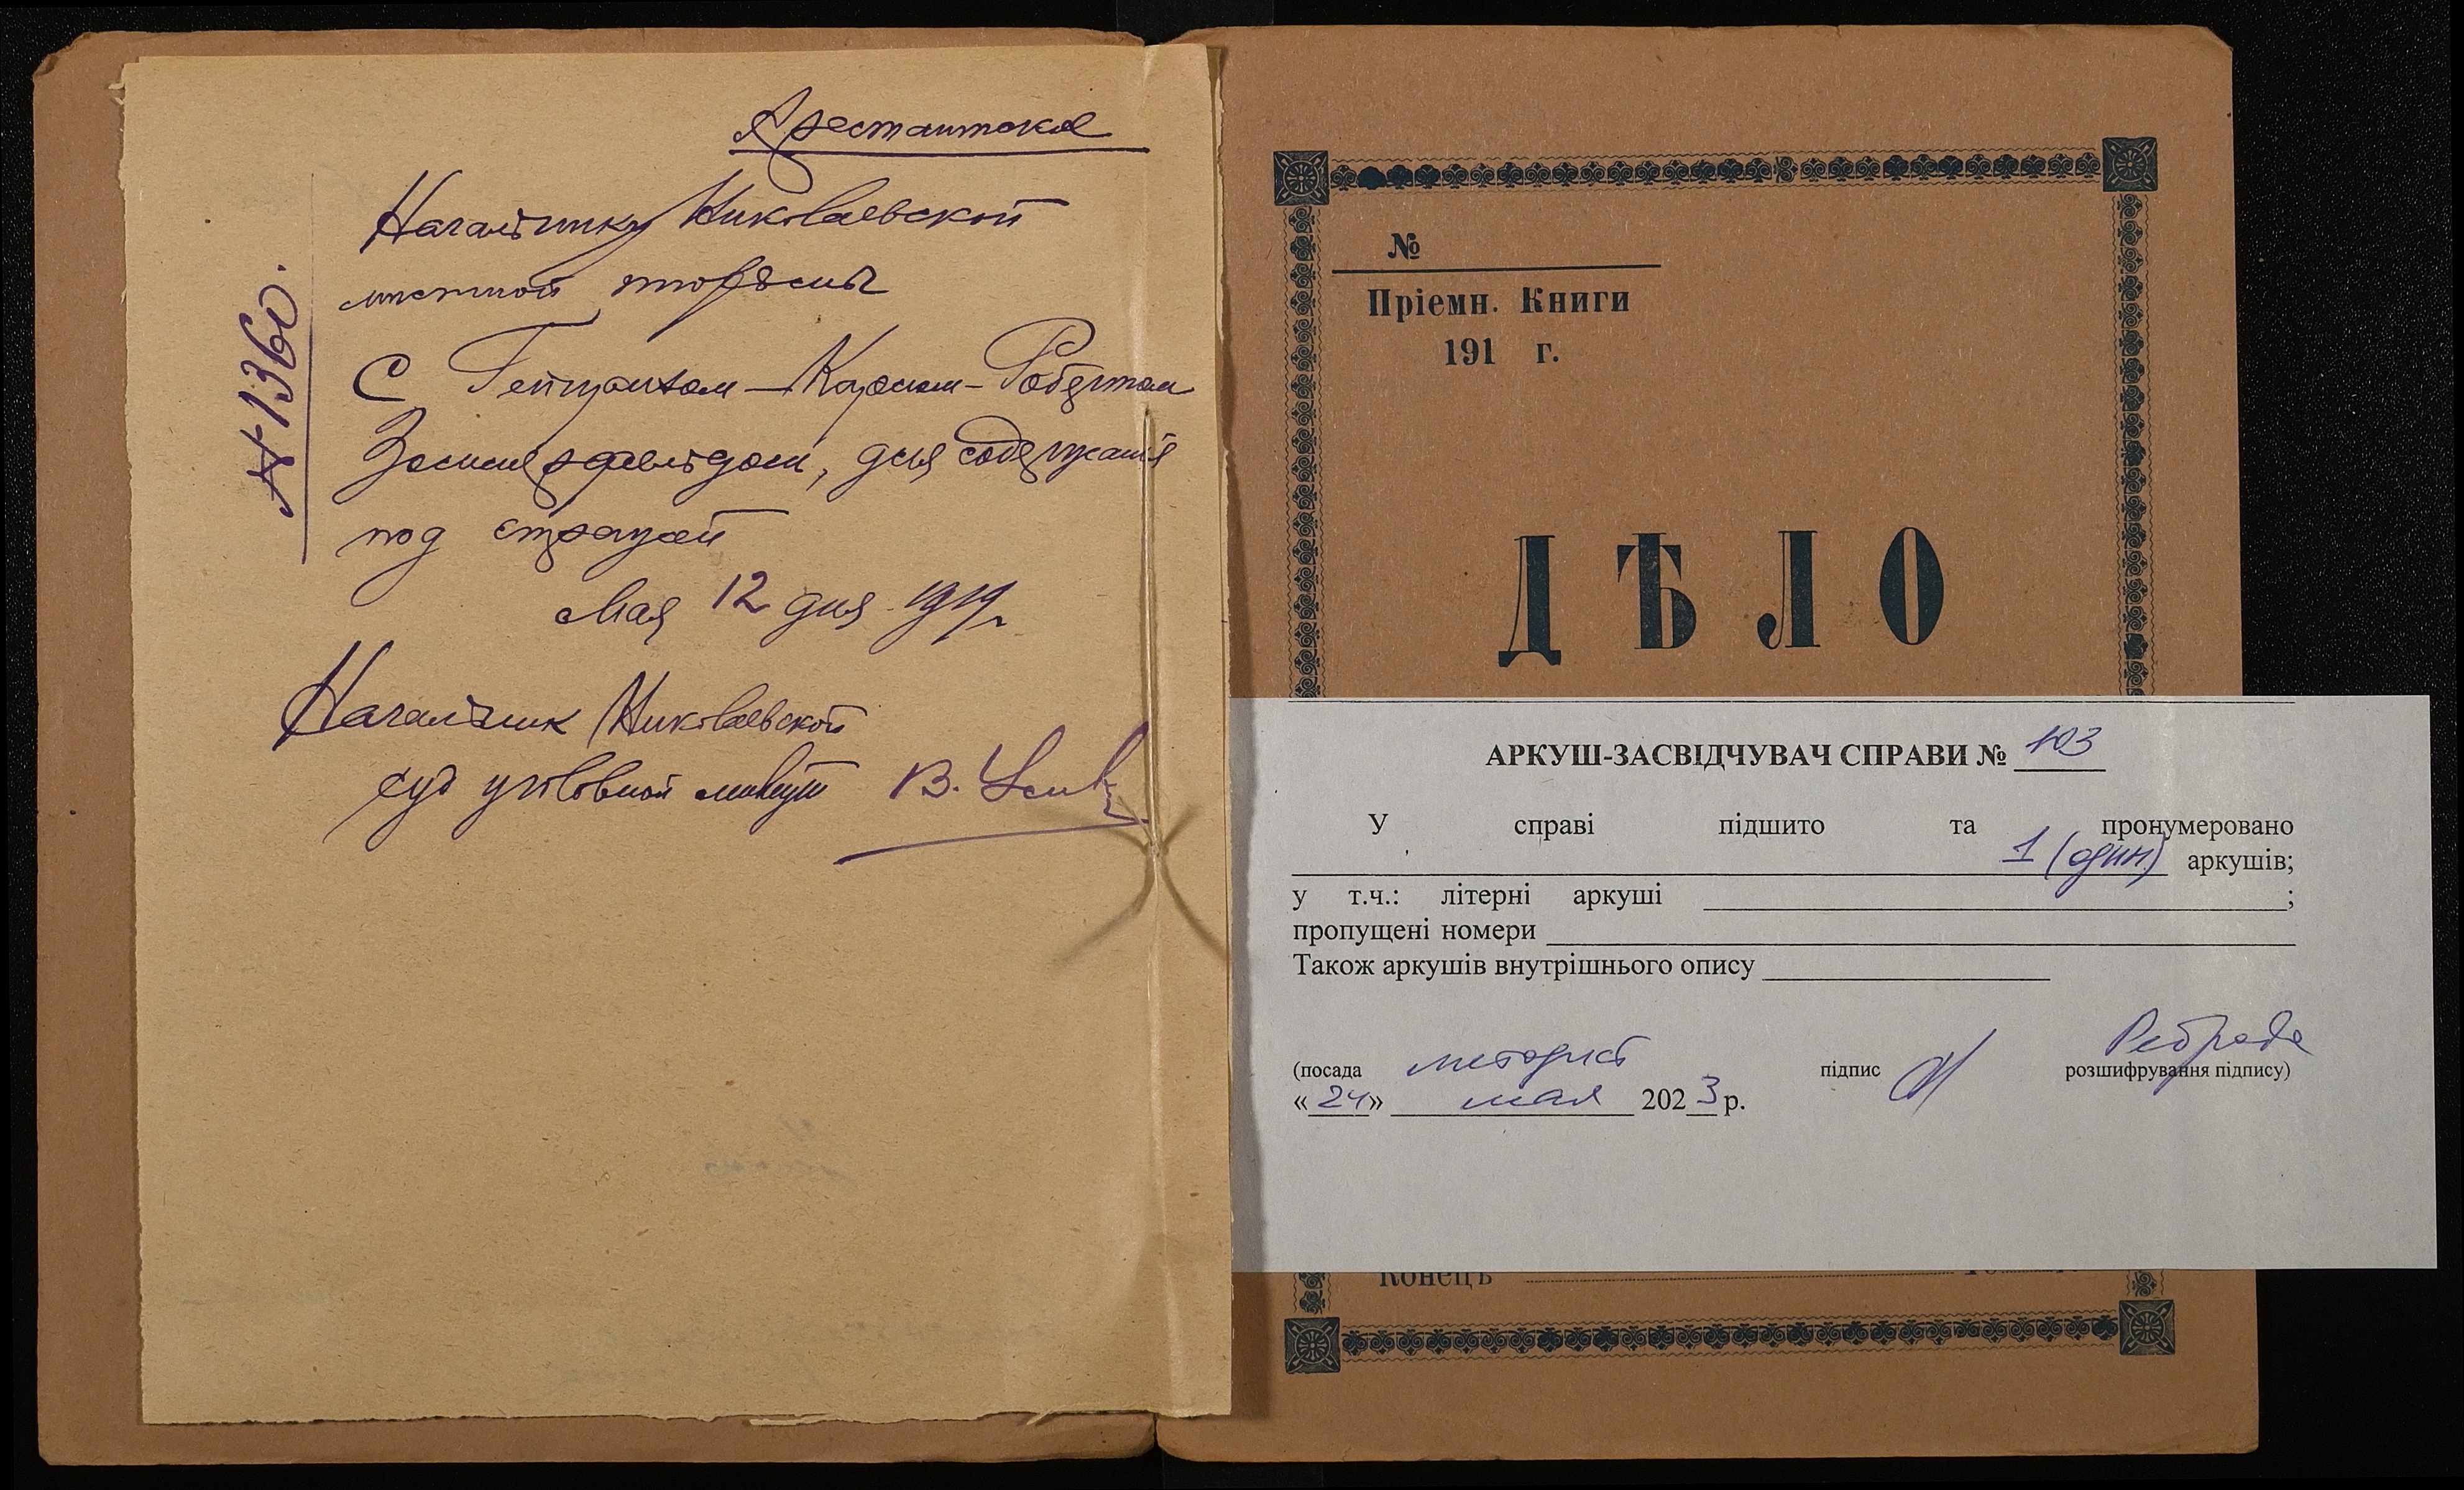 Арестантское
№ 1360.
Начальнику Николаевской
местной тюрьмы
С Гейнрихом-Карлом-Робертом
для содержания
под стражей
Мая 12 дня 1919 г.
Начальник Николаевской
суд уголовной милиции В.
№
Пріемн. Книги
191 г.
ДѢЛО
АРКУШ-ЗАСВІДЧУВАЧ СПРАВИ № 103
У справі підшито та пронумеровано
1 (один) аркушів;
у т.ч.: літерні аркуші ;
пропущені номери
Також аркушів внутрішнього опису
(посада методист підпис Ребрада розшифрування підпису)
«24» мая 2023 р.
Конецъ